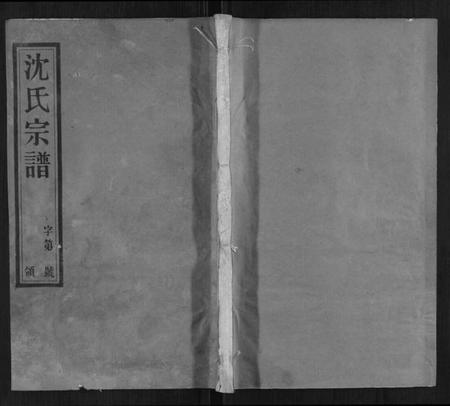 沈氏宗譜
字第
號
領